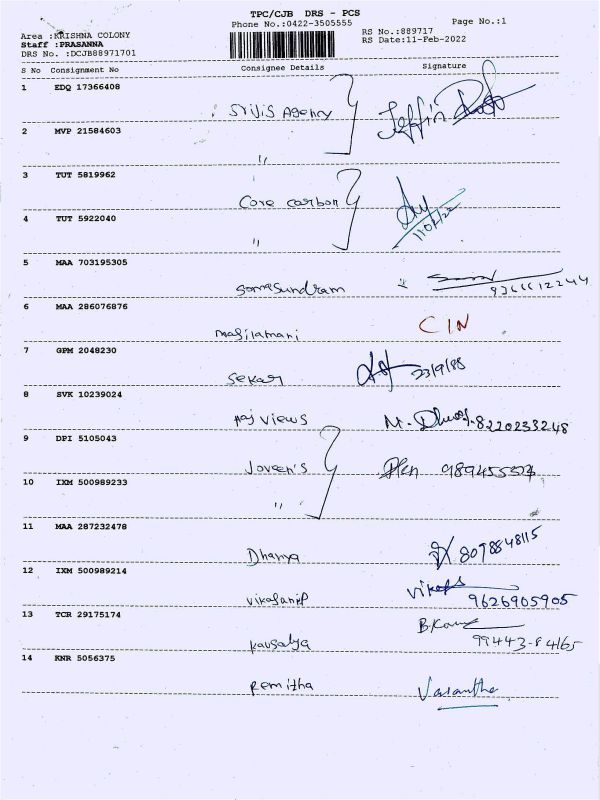 TPC/CJB DRS - PCS
Phone No.:0422-3505555
Page No.:1
Area :KRISHNA COLONY
Staff :PRASANNA
DRS No. :DCJB88971701
RS No.:889717
RS Date:11-Feb-2022
S No Consignment No Consignee Details Signature
1 EDQ 17366408
Srijis Agency Jeffin
2 MVP 21584603
"
3 TUT 5819962
Core carbon
4 TUT 5922040
" 11/02/22
5 MAA 703195305
Somasundram
6 MAA 286076876
Masilamani CIN
7 GPM 2048230
Sekar 23/9/88
8 SVK 10239024
Views M. 8220233248
9 DPI 5105043
Joveen's
10 IXM 500989233
"
11 MAA 287232478
Dhanya 8078848115
12 IXM 500989214
9626905905
13 TCR 29175174
Kausalya 99443-84165
14 KNR 5056375
Remitha Vasantha